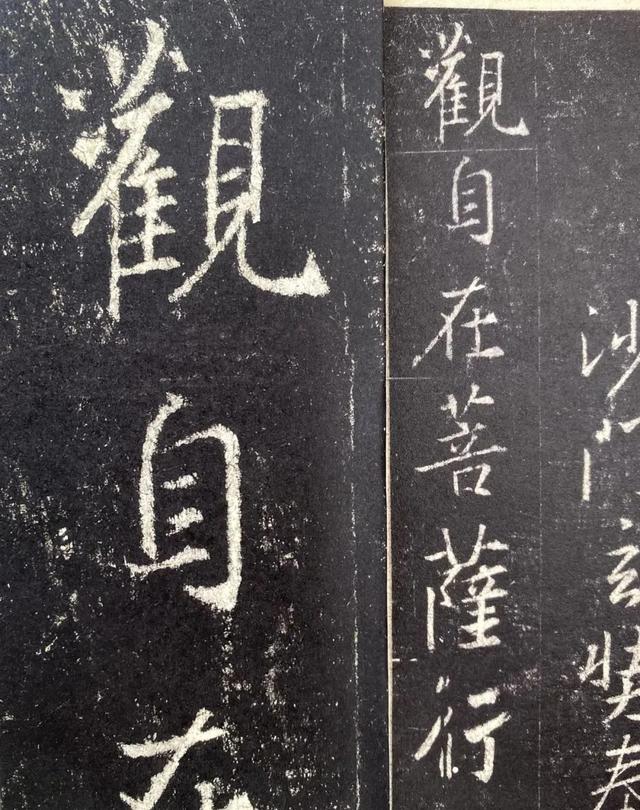 沙門玄奘奉
觀自在菩薩行
觀自在